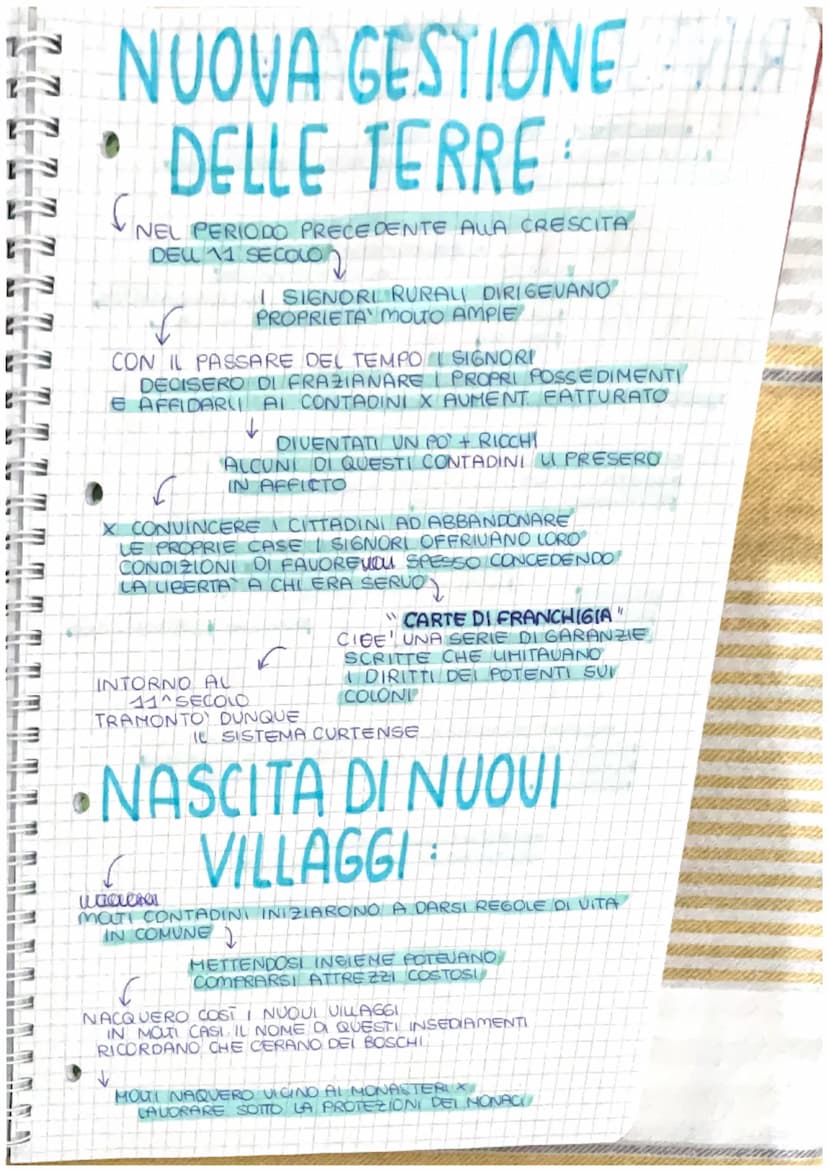 NUOVA GESTIONE
DELLE TERRE:
NEL PERIODO PRECEDENTE ALLA CRESCITA
DELL'11 SECOLO
I SIGNORI RURALI DIRIGEVANO
PROPRIETA' MOLTO AMPIE
CON IL PASSARE DEL TEMPO I SIGNORI
DECISERO DI FRAZIANARE I PROPRI POSSEDIMENTI
E AFFIDARLI AI CONTADINI X AUMENT. FATTURATO
DIVENTATI UN PO' + RICCHI
ALCUNI DI QUESTI CONTADINI LI PRESERO
IN AFFICTO
X CONVINCERE I CITTADINI AD ABBANDONARE
LE PROPRIE CASE I SIGNORI OFFRIVANO LORO
CONDIZIONI DI FAVORE SPESSO CONCEDENDO
LA LIBERTA' A CHI ERA SERVO
"CARTE DI FRANCHIGIA"
CIOE' UNA SERIE DI GARANZIE
SCRITTE CHE LIMITAVANO
I DIRITTI DEI POTENTI SUI
COLONI
INTORNO AL
11^ SECOLO
TRAMONTO' DUNQUE
IL SISTEMA CURTENSE
NASCITA DI NUOVI
VILLAGGI:
MOLTI CONTADINI INIZIARONO A DARSI REGOLE DI VITA
IN COMUNE
METTENDOSI INSIEME POTEVANO
COMPRARSI ATTREZZI COSTOSI
NACQUERO COSÌ I NUOVI VILLAGGI
IN MOLTI CASI IL NOME DI QUESTI INSEDIAMENTI
RICORDANO CHE CERANO DEI BOSCHI
MOLTI NAQUERO VICINO AI MONASTERI X
LAVORARE SOTTO LA PROTEZIONI DEI MONACI